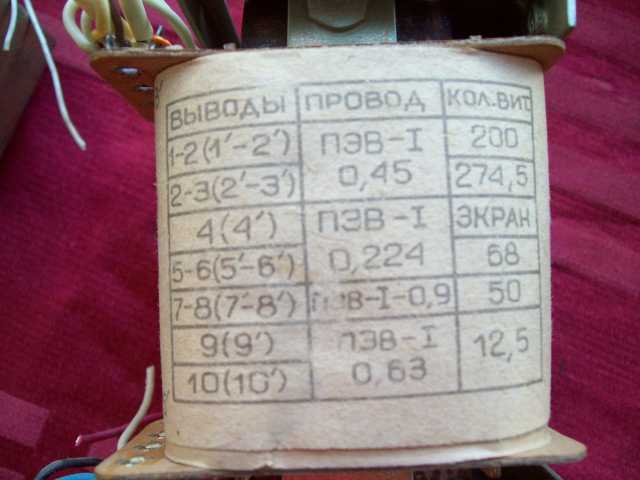 ВЫВОДЫ ПРОВОД КОЛ.ВИТ
1-2(1'-2') ПЭВ-I 200
2-3(2'-3') 0,45 274,5
4(4') ПЭВ-I ЭКРАН
5-6(5'-6') 0,224 68
7-8(7'-8') ПЭВ-I-0,9 50
9(9') ПЭВ-I 12,5
10(10') 0,63